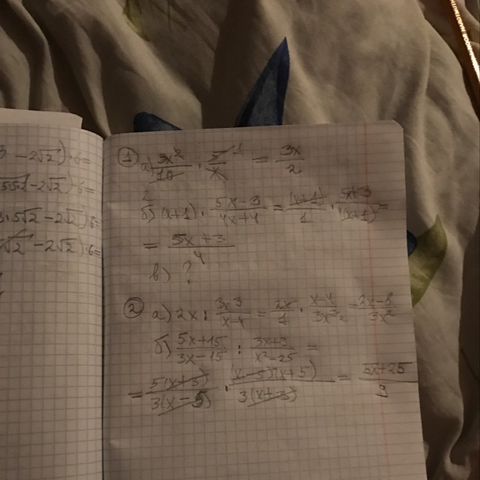 3 − 2√2)·6=
5√2 − 2√2)·6=
3·5√2 − 2√2)·6=
√2 − 2√2)·6=
① а) 3x²/10 · 5/x = 3x/2
б) (x+1) · (5x−3)/(4x+4) = (x+1)/1 · (5x−3)/4(x+1) =
= (5x+3)/4
в) ?
② а) 2x : 3x³/(x−4) = 2x/1 · (x−4)/3x³ = (2x−8)/3x²
б) (5x+15)/(3x−15) : (3x+9)/(x²−25) =
= 5(x+3)/3(x−5) · (x−5)(x+5)/3(x+3) = (5x+25)/9